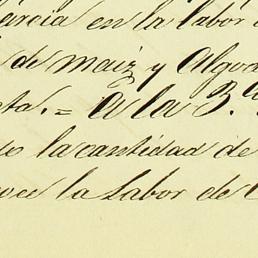 Garcia en la labor
de maiz y Algod
ta. = A la 3.a
lo la cantidad de
ce la Labor de